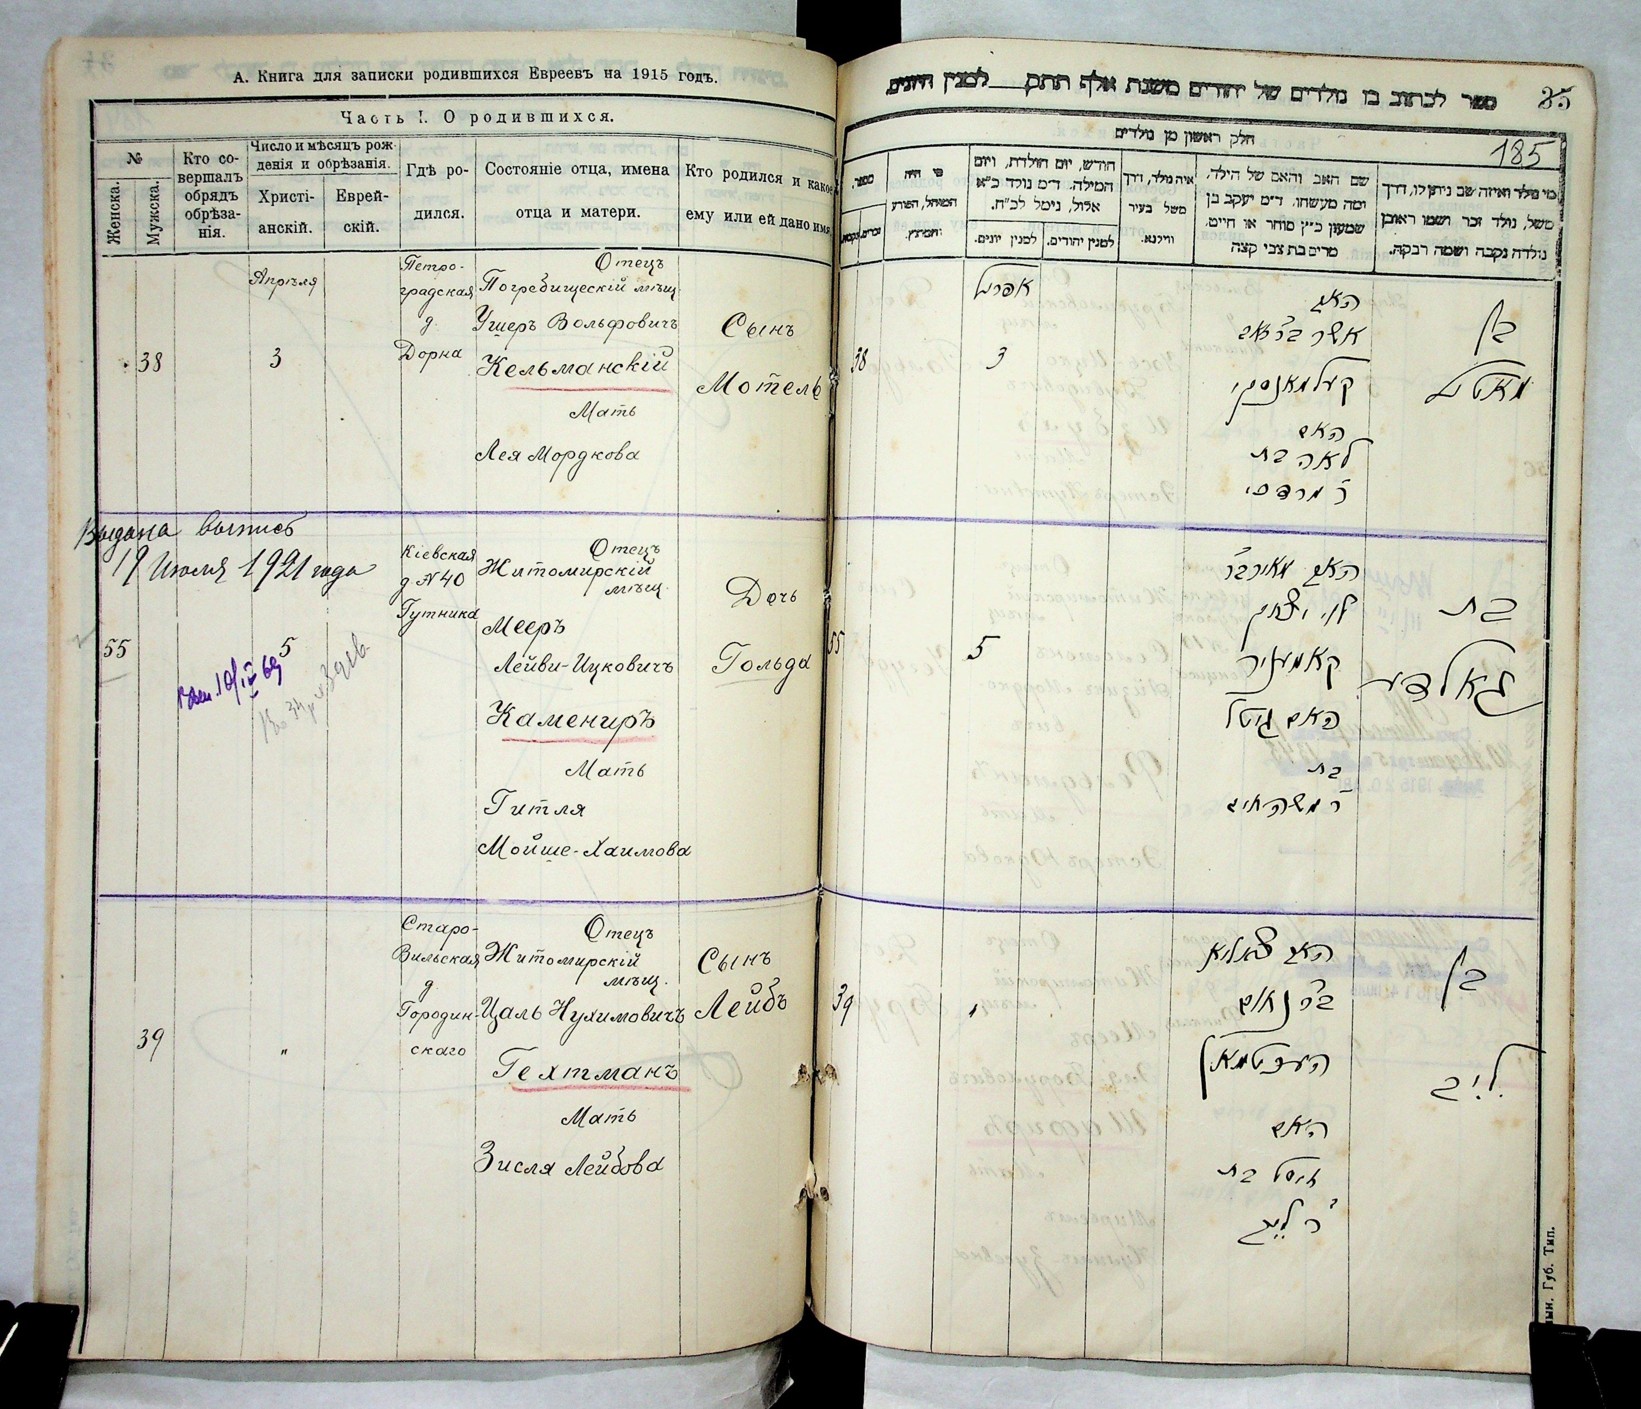 А. Книга для записки родившихся Евреевъ на 1915 годъ.
Часть I. О родившихся.
№
Женска.
Мужска.
Кто со-
вершалъ
обрядъ
обрѣза-
нія.
Число и мѣсяцъ рож
денія и обрѣзанія.
Христі-
анскій.
Еврей-
скій.
Гдѣ ро-
дился.
Состояніе отца, имена
отца и матери.
Кто родился и какое
ему или ей дано имя
38
Апрѣля
3
Петро-
градская
д.
Дорна
Отецъ
Погребищескій мѣщ.
Ушеръ Вольфовичъ
Кельманскій
Мать
Лея Мордкова
Сынъ
Мотель
Выдана выпись
19 Июля 1921 года
55
5
Кіевская
д N 40
Гутника
Отецъ
Житомирскій
мѣщ.
Мееръ
Лейви-Ицковичъ
Камениръ
Мать
Гитля
Мойше-Хаимова
Дочь
Гольда
39
"
Старо-
Вильская
д
Городин-
скаго
Отецъ
Житомирскій
мѣщ.
Цаль Нухимовичъ
Гехтманъ
Мать
Зисля Лейбова
Сынъ
Лейбъ
ספר לכתוב בו נולדים של יהודים משנת אלף תתק למנין היונים
185
חלק ראשון מן נולדים
מי נולד ואיזה שם ניתן לו, דרך
משל, נולד זכר ושמו ראובן
נולדה נקבה ושמה רבקה.
שם האב והאם של הילד,
ומה מעשהו. ד״מ יעקב בן
שמעון כ״ץ סוחר או חיים,
מרים בת צבי קצה
איה נולד, דרך
משל בעיר
ווילנא.
חודש, יום הולדת, ויום
המילה. ד״מ נולד כ״א
אלול, נימל לכ״ח.
למנין יהודים.
למנין יונים.
מי היה
המוהל, הפורע
והמוצץ.
מספר,
זכרים.
נקבות.
38
אפריל
3
האב
אשר
קעלמאנסקי
האם
לאה בת
ר׳ מרדכי
בן
מאטיל
55
5
האב מאיר בר׳
לוי יצחק
קאמעניר
האם גיטל
בת
ר׳ משה חיים
בת
גאלדע
39
"
האב
בר׳ נחום
העכטמאן
האם
זיסל בת
ר׳ לייב
בן
לייב
ын. Губ. Тип.